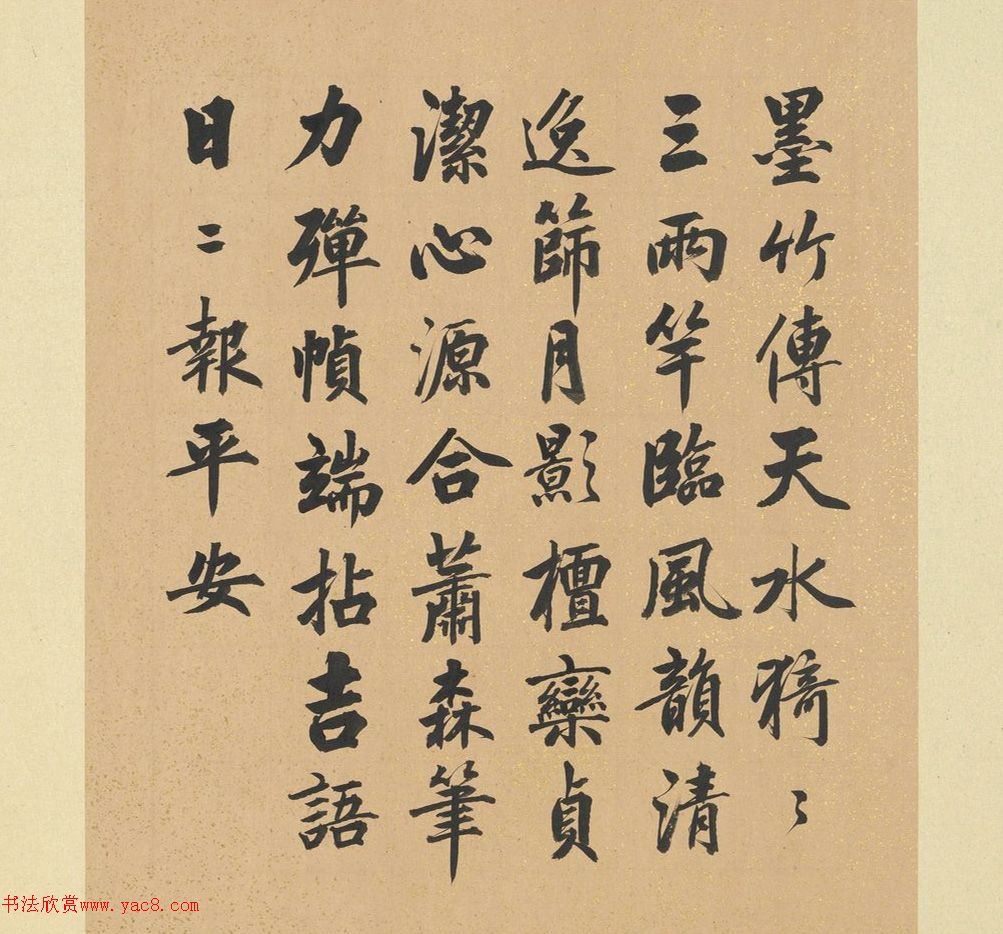 墨竹傳天水猗〻
三兩竿臨風韻清
逸篩月影檀欒貞
潔心源合蕭森筆
力殫幀端拈吉語
日〻報平安
书法欣赏www.yac8.com